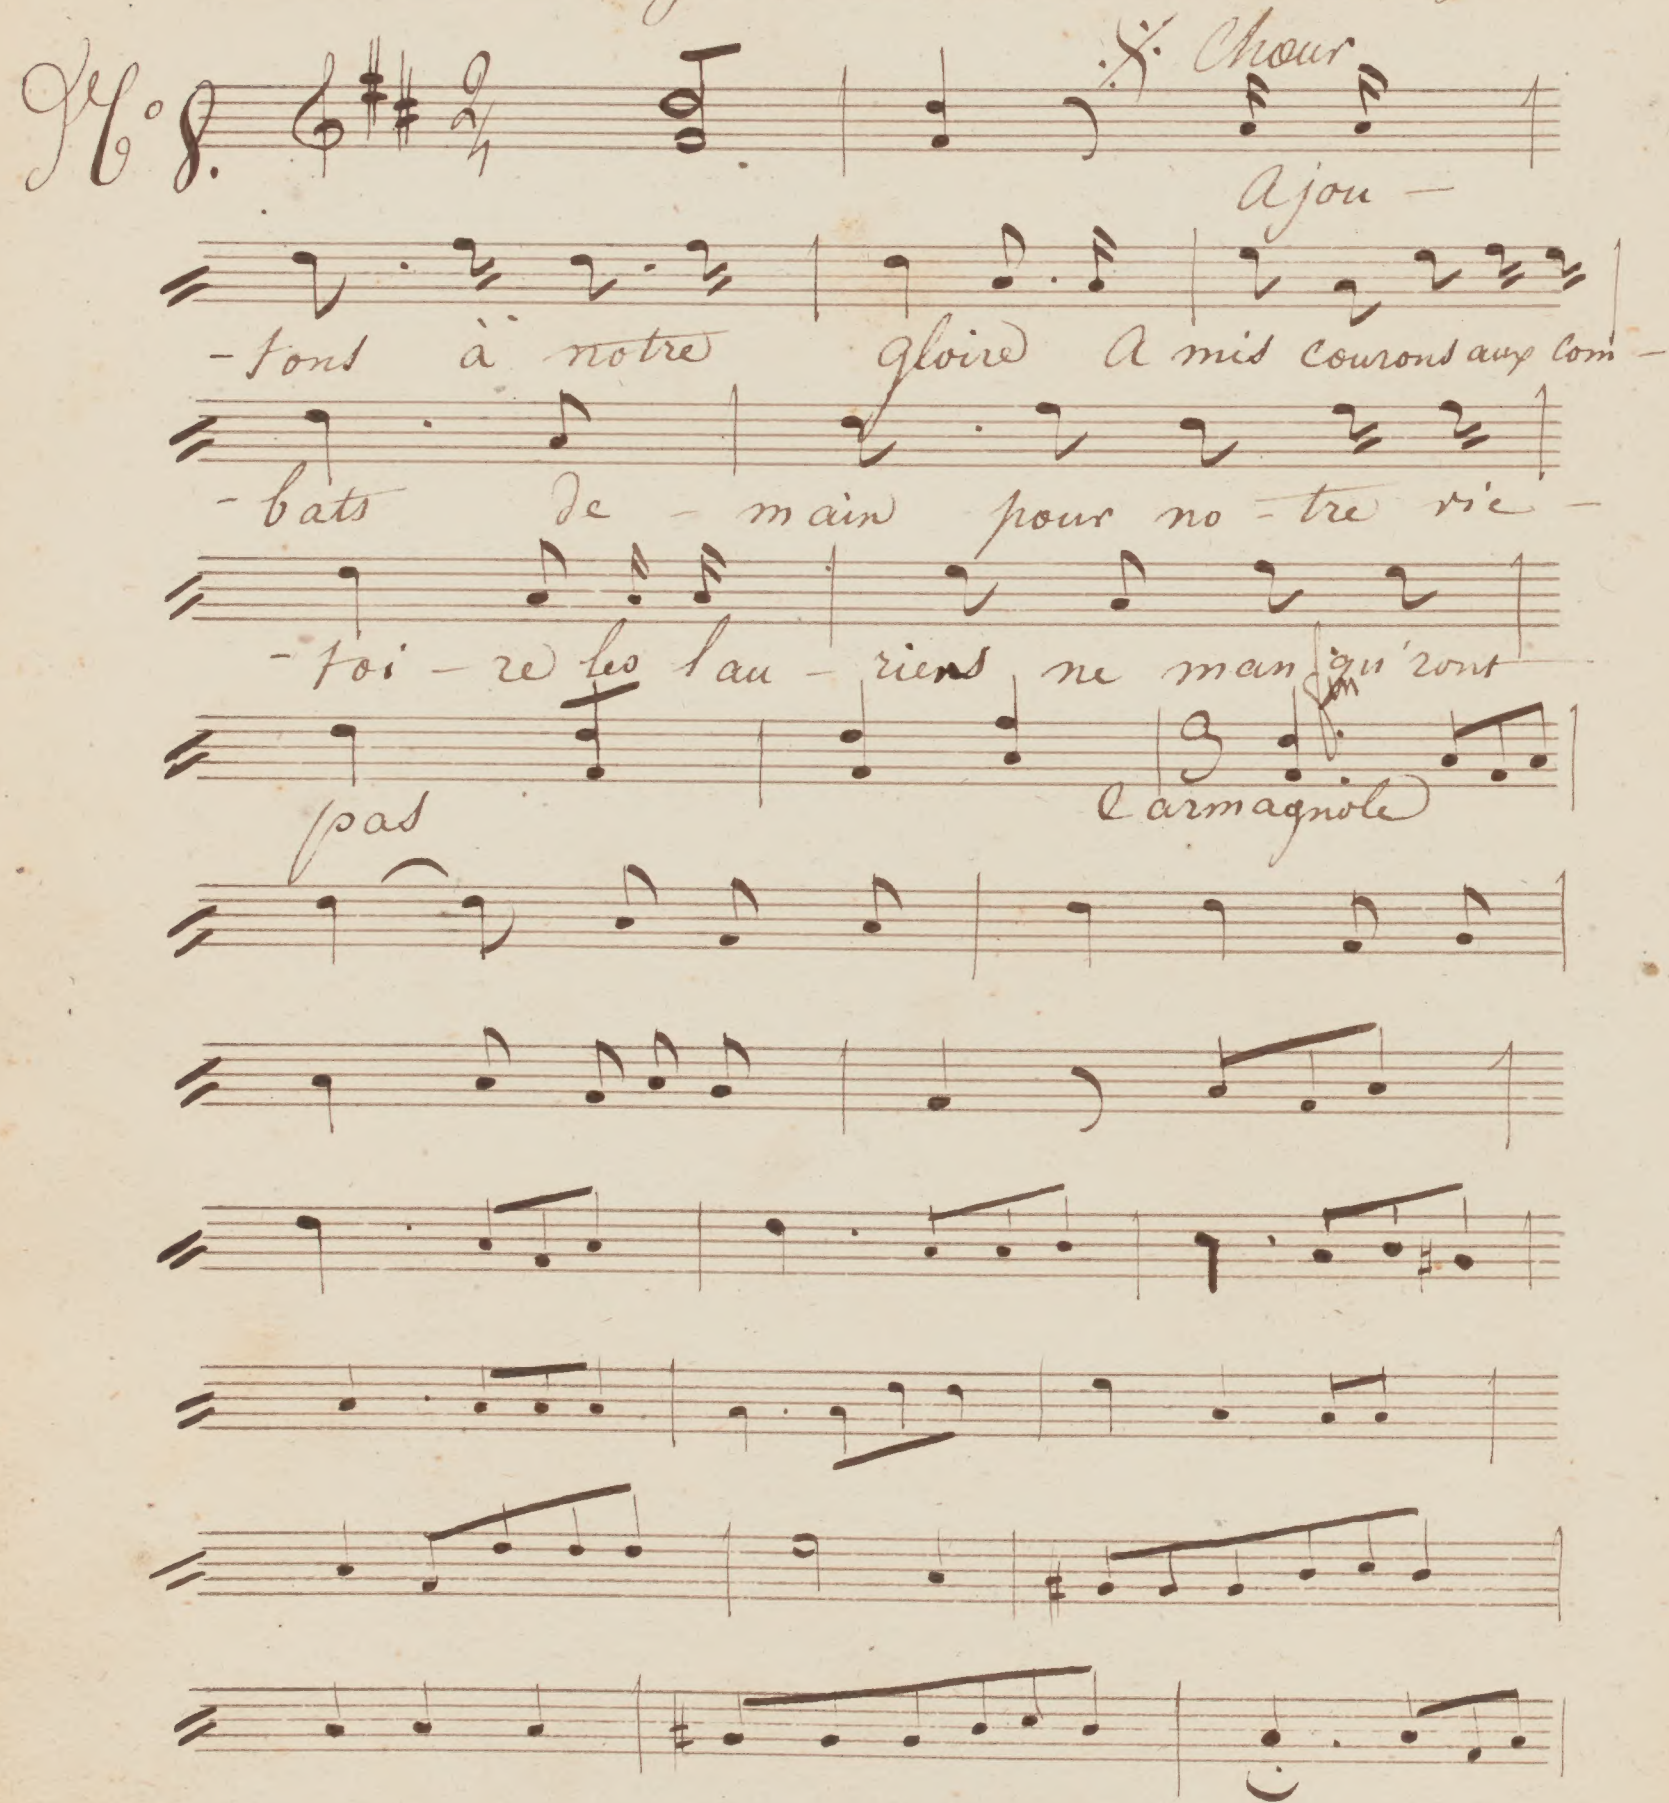 No 8. 2/4 Chœur
Ajou -
- tons à notre gloire Amis courons aux com -
- bats de - main pour no - tre vic -
- toi - re les lau - riers ne man qu'ront
fin
pas Carmagnole